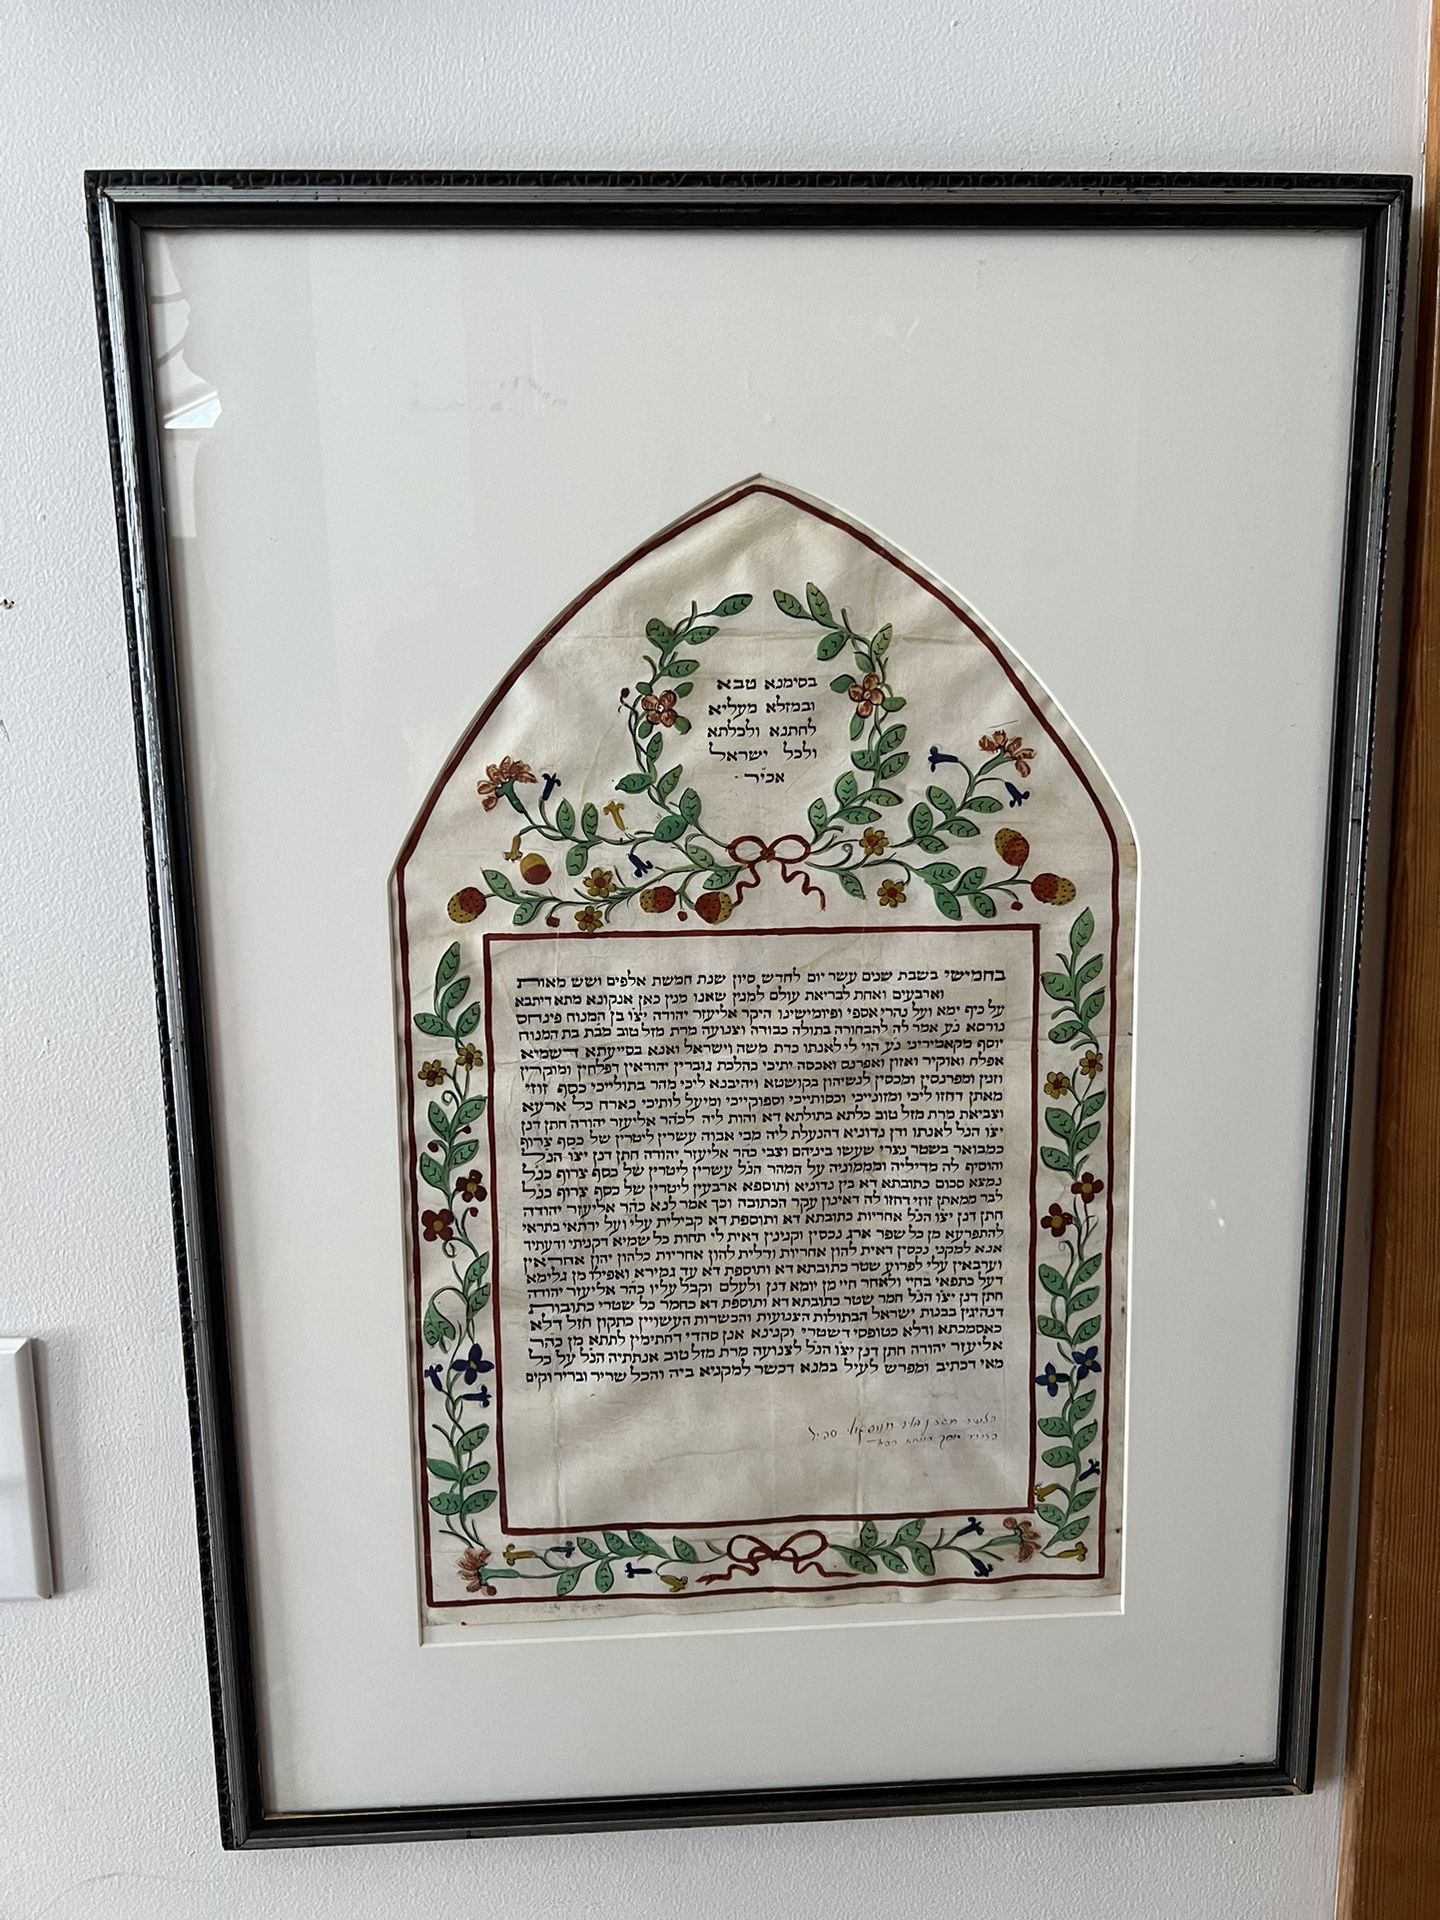 בסימנא טבא
ובמזלא מעליא
לחתנא ולכלתא
ולכל ישראל
אכי״ר
בחמישי בשבת שנים עשר יום לחדש סיון שנת חמשת אלפים ושש מאות
וארבעים ואחת לבריאת עולם למנין שאנו מנין כאן אנקונא מתא דיתבא
על כיף ימא ועל נהרי אספי ופיומישינו היקר אליעזר יהודה יצ״ו בן המנוח פינחס
נורסא נ״ע אמר לה להבחורה בתולה כבודה וצנועה מרת מזל טוב מב״ת בת המנוח
יוסף מקאמיריני נ״ע הוי לי לאנתו כדת משה וישראל ואנא בסייעתא דשמיא
אפלח ואוקיר ואזון ואפרנס ואכסה יתיכי כהלכת גוברין יהודאין דפלחין ומוקרין
וזנין ומפרנסין ומכסין לנשיהון בקושטא ויהיבנא ליכי מהר בתולייכי כסף זוזי
מאתן דחזו ליכי ומזונייכי וכסותייכי וספוקייכי ומיעל לותיכי כארח כל ארעא
וצביאת מרת מזל טוב כלתא בתולתא דא והות ליה לכה״ר אליעזר יהודה חתן דנן
יצ״ו הנ״ל לאנתו ודן נדוניא דהנעלת ליה מבי אבוה עשרין ליטרין של כסף צרוף
כמבואר בשטר נצרי שעשו ביניהם וצבי כהר אליעזר יהודה חתן דנן יצ״ו הנ״ל
והוסיף לה מדיליה ומממוניה על המהר הנ״ל עשרין ליטרין של כסף צרוף כנ״ל
נמצא סכום כתובתא דא בין נדוניא ותוספא ארבעין ליטרין של כסף צרוף כנ״ל
לבר ממאתן זוזי דחזו לה דאינון עקר הכתובה וכך אמר לנא כה״ר אליעזר יהודה
חתן דנן יצ״ו הנ״ל אחריות כתובתא דא ותוספת דא קבילית עלי ועל ירתאי בתראי
להתפרעא מן כל שפר ארג נכסין וקנינין דאית לי תחות כל שמיא דקניתי ודעתיד
אנא למקני נכסין דאית להון אחריות ודלית להון אחריות כלהון יהון אחראין
וערבאין עלי לפרוע שטר כתובתא דא ותוספת דא עד גמירא ואפילו מן גלימא
דעל כתפאי בחיי ולאחר חיי מן יומא דנן ולעלם וקבל עליו כה״ר אליעזר יהודה
חתן דנן יצ״ו הנ״ל חמר שטר כתובתא דא ותוספת דא כחמר כל שטרי כתובות
דנהיגין בבנות ישראל הבתולות הצנועות והכשרות העשויין כתקון חז״ל דלא
כאסמכתא ודלא כטופסי דשטרי וקנינא אנן סהדי דחתימין לתתא מן כה״ר
אליעזר יהודה חתן דנן יצ״ו הנ״ל לצנועה מרת מזל טוב אנתתיה הנ״ל על כל
מאי דכתיב ומפרש לעיל במנא דכשר למקניא ביה והכל שריר ובריר וקים